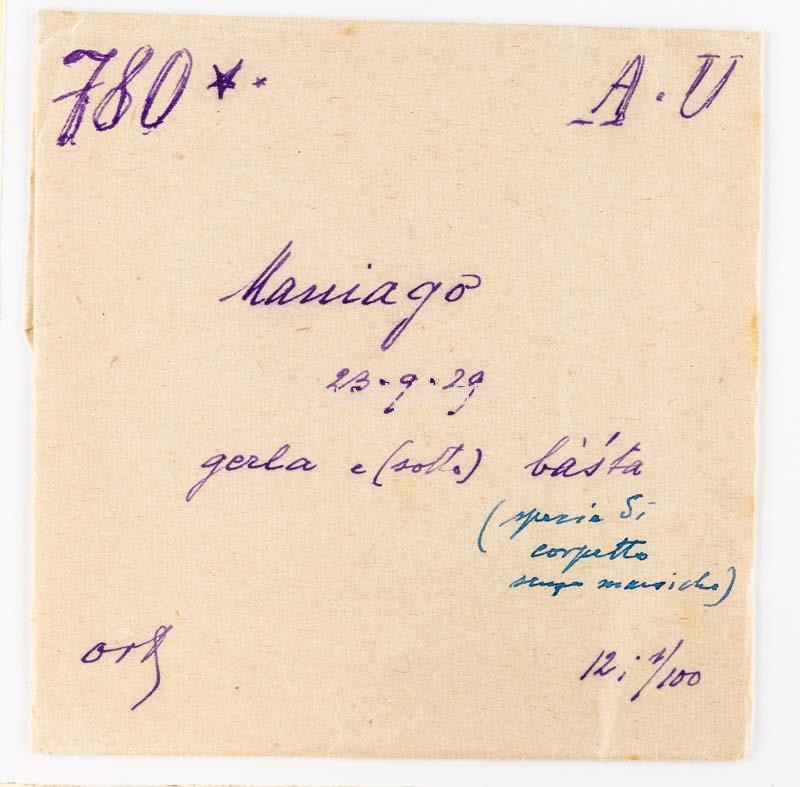 780 ★ *
A. U
Maniago
23.9.29
gerla e (sotto) bàśta
(specie di
corpetto
senza maniche)
12; 1/100